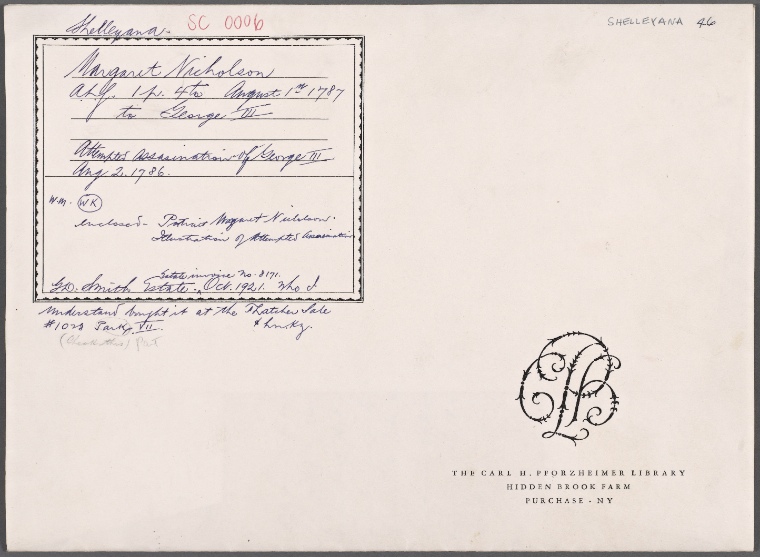 Shelleyana.
SC 0006
SHELLEYANA 46
Margaret Nicholson
A.L.S. 1 p. 4to August 1st 1787
to George III
Attempted Assasination of George III
Aug 2. 1786.
W.M. WK
enclosed - Portrait Margaret Nicholson.
Illustration of Attempted Assasination
Estate invoice No. 8171.
G.D. Smith Estate. Oct. 1921. Who I
understand bought it at the Thatcher Sale
#1023 Part VII.
Part
THE CARL H. PFORZHEIMER LIBRARY
HIDDEN BROOK FARM
PURCHASE - NY